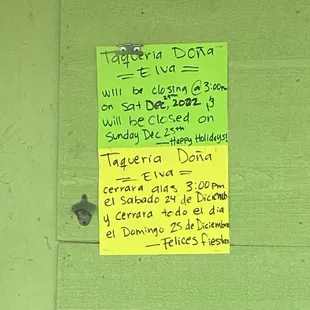 Taqueria Doña
= Elva =
will be closing @ 3:00pm
on Sat Dec, 24th 2022 &
will be closed on
Sunday Dec 25th
— Happy Holidays!
Taqueria Doña
= Elva =
cerrara alas 3:00pm
el Sabado 24 de Diciemb
y cerrara todo el dia
el Domingo 25 de Diciembre
— Felices fiestas